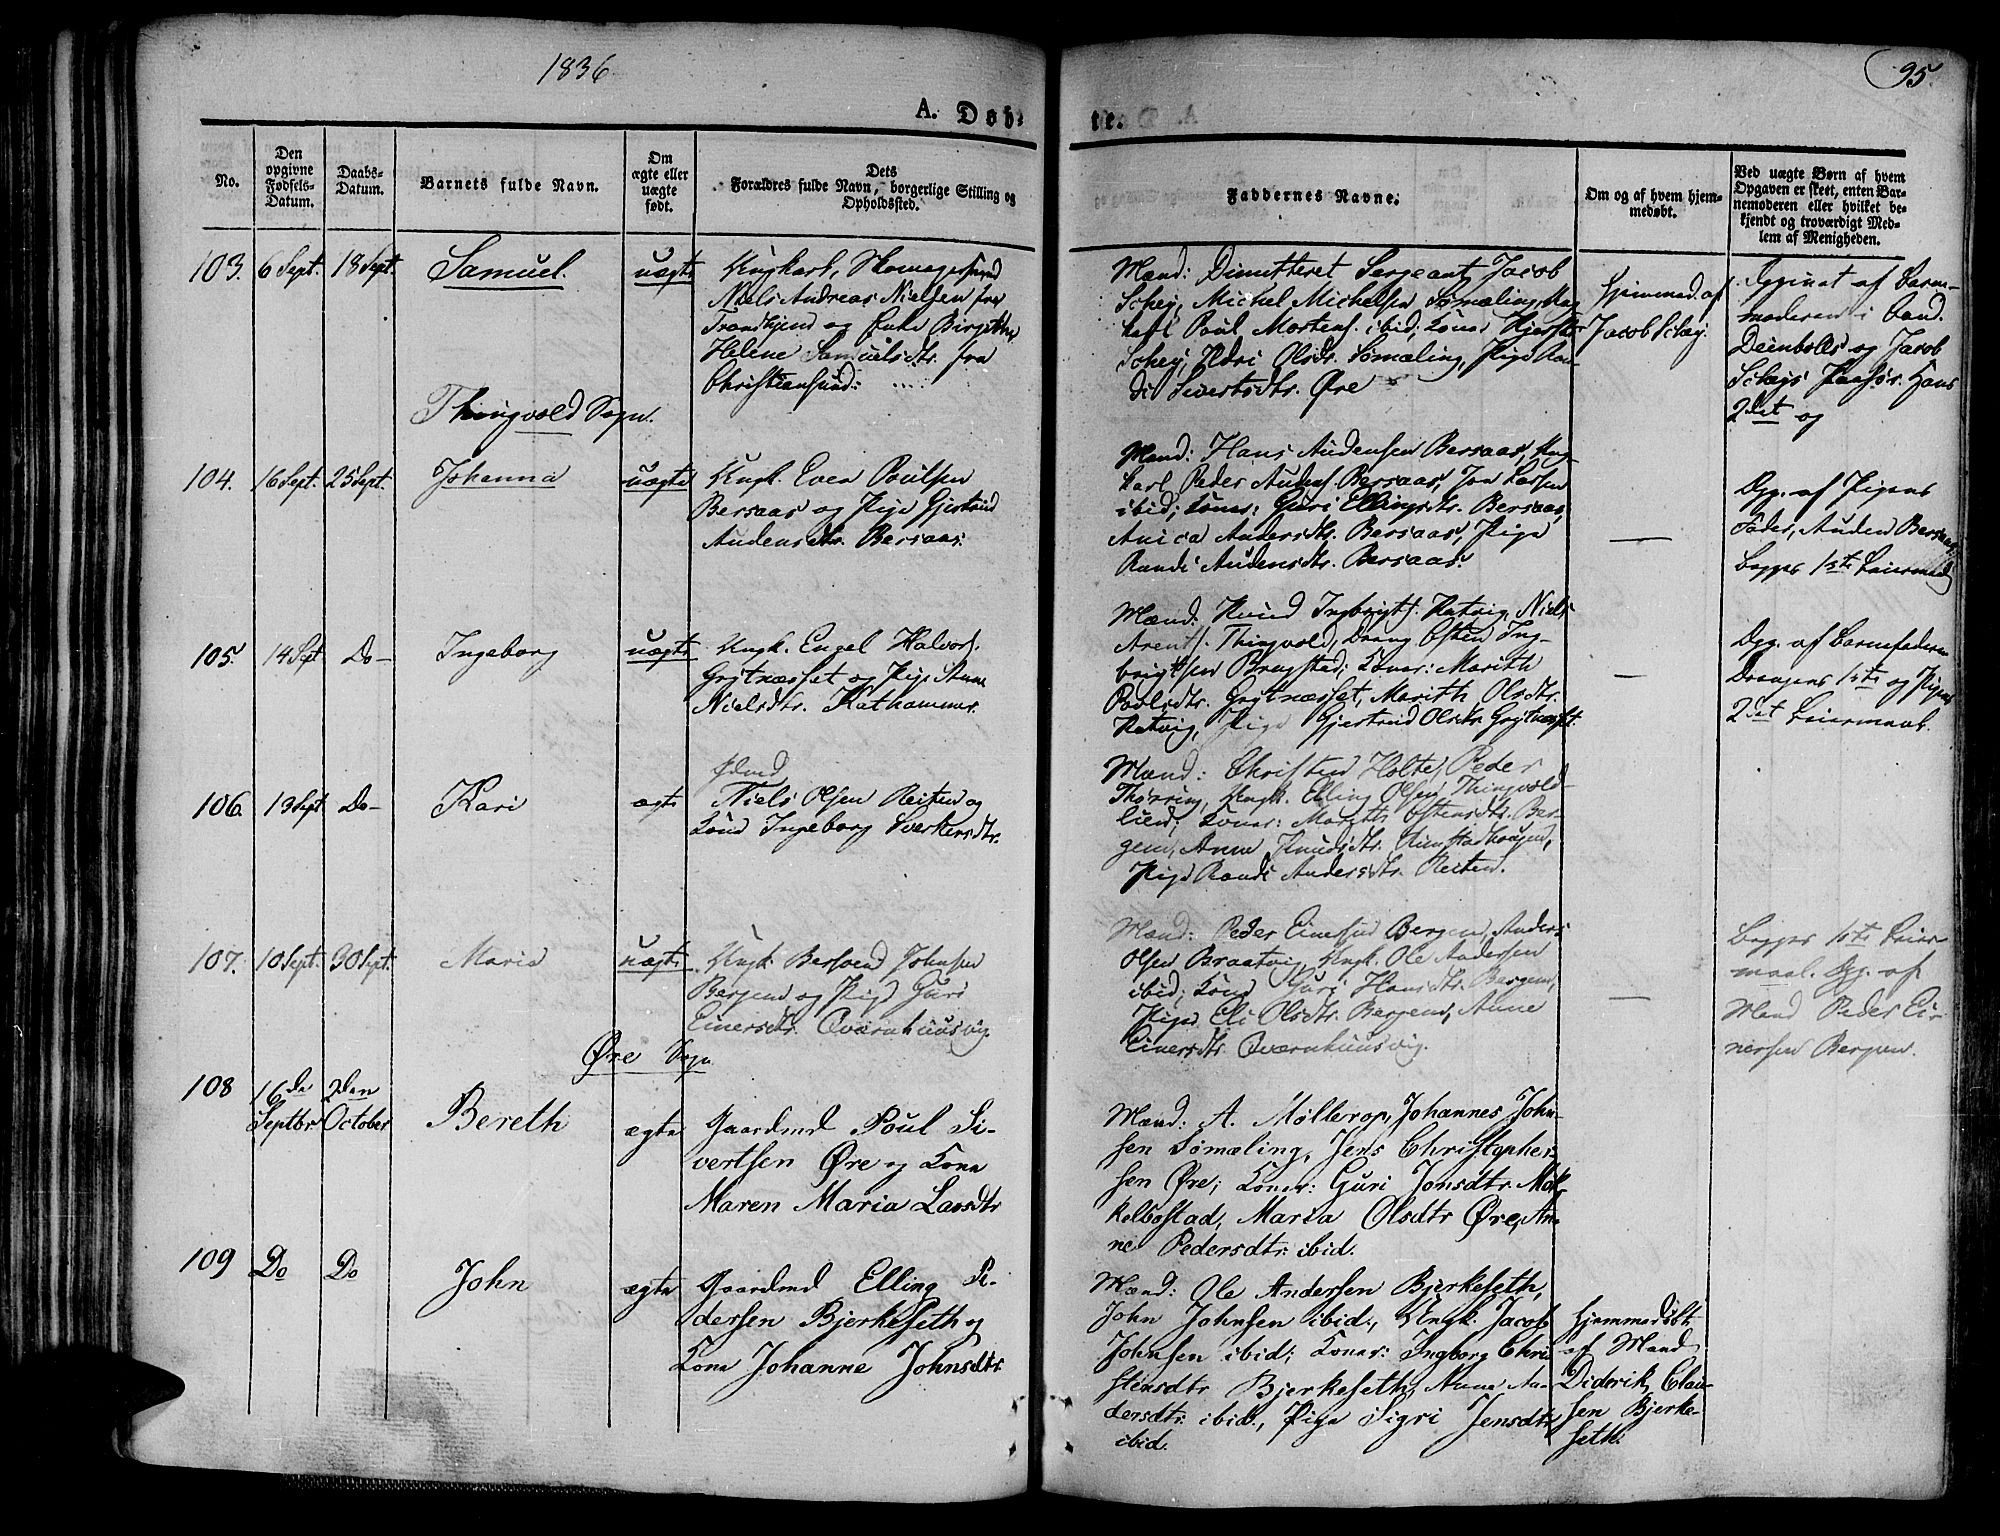 1836
95.
A. Döb-
te.
No.
Den
opgivne
Fødsels-
Datum.
Daabs-
Datum.
Barnets fulde Navn.
Om
ægte eller
uægte
født.
Dets
Forældres fulde Navn, borgerlige Stilling og
Opholdssted.
Faddernes Navne.
Om og af hvem hjem-
medøbt.
Ved uægte Børn af hvem
Opgaven er skeet, enten Bar-
nemoderen eller hvilket be-
kjendt og troværdigt Med-
lem af Menigheden.
103. 6 Sept. 18 Sept. Samuel. uægte
Ungkarl, Skomagersvend
Niels Andreas Nielsen fra
Trondhjem og Enke Birgithe
Helene Samuelsdtr. fra
Christiansund.
Mænd: Dimitteret Sergeant Jacob
Schey, Michel Michelsen Sømæling, Ung
karl Poul Mortens. ibid; Koner
Schey, Ildri Olsdr. Sømæling, Pige Ran-
di Sivertsdtr. Øre
Hjemmed. af
Jacob Schey.
Opgivet af Barne-
moderen
og Jacob
Scheys Hans
2det og
Thingvold Sogn.
104. 16 Sept. 25 Sept. Johanna uægte
Ungk. Even Poulsen
Bersaas og Pige Gjertrud
Audensdtr. Bersaas.
Mænd: Hans Audensen Bersaas, Ung-
karl Peder Audens. Bersaas, Jon Larsen
ibid; Koner: Guri Ellingsdtr. Bersaas,
Anica Andersdtr. Bersaas, Pige
Randi Audensdtr. Bersaas.
—
Opg. af Pigens
Fader, Auden Bersaas
begges 1ste Leiermaal
105. 14 Sept Do— Ingeborg uægte
Ungk. Engel Halvors.
Grytnæsset og Pige Anne
Nielsdtr. Kathammer.
Mænd: Knud Ingbrigts. Ratvig, Niels
Arents. Thingvold, Dreng Østen Ing-
brigtsen Brugstad; Koner: Marith
Povlsdtr. Grytnæsset, Marith Olsdtr.
Ratvig, Pige Gjertrud Olsdtr. Grytnæsset.
—
Opg. af Barnefaderen
Drengens 1ste og Pigens
2det Leiermaal.
106. 13 Sept Do— Kari ægte
Niels Olsen Reiten og
Kone Ingeborg Sverkersdtr.
Mænd: Christen Holte, Peder
Thørring, Ungk. Elling Olsen Thingvold-
lien; Koner: Marith Østensdtr. Ber-
gem, Anne Knudsdtr. Aunstadhougen,
Pige Randi Andersdtr. Reiten.
107. 10 Sept. 30 Sept. Maria uægte
Ungk. Bersvend Johnsen
Bergem og Pige Guri
Einersdtr. Qvernhuusvig.
Mænd: Peder Einersen Bergem, Anders
Olsen Braatvig, Ungk. Ole Andersen
ibid; Kone Guri Hansdtr. Bergem,
Pige Eli Olsdtr. Bergem, Anne
Einersdtr. Qvernhuusvig.
—
begges 1ste Leier-
maal. Opg. af
Mand Peder Ei-
nersen Bergem.
Øre Sogn
108 16de
Septbr 2den
October Bereth ægte
Gaardmd Poul Si-
vertsen Øre og Kone
Maren Maria Larsdtr
Mænd: A. Møllerop, Johannes John-
sen Sømæling, Jens Christopher-
sen Øre; Koner: Guri Jonsdtr. Møk-
kelbostad, Maria Olsdtr Øre, An-
ne Pedersdtr: ibid.
109 Do Do John ægte
Gaardmd Elling Pe-
dersen Bjerkeseth og
Kone Johanne Johnsdtr
Mænd: Ole Andersen Bjerkeseth,
John Johnsen ibid:, Ungk. Jacob
Johnsen ibid; Koner: Ingborg Chri-
stensdtr Bjerkeseth, Anne An-
dersdtr: ibid., Pige Sigri Jensdtr
ibid.
Hjemmedøbt
af Mand
Diderik Clau-
sen Bjerke-
seth.